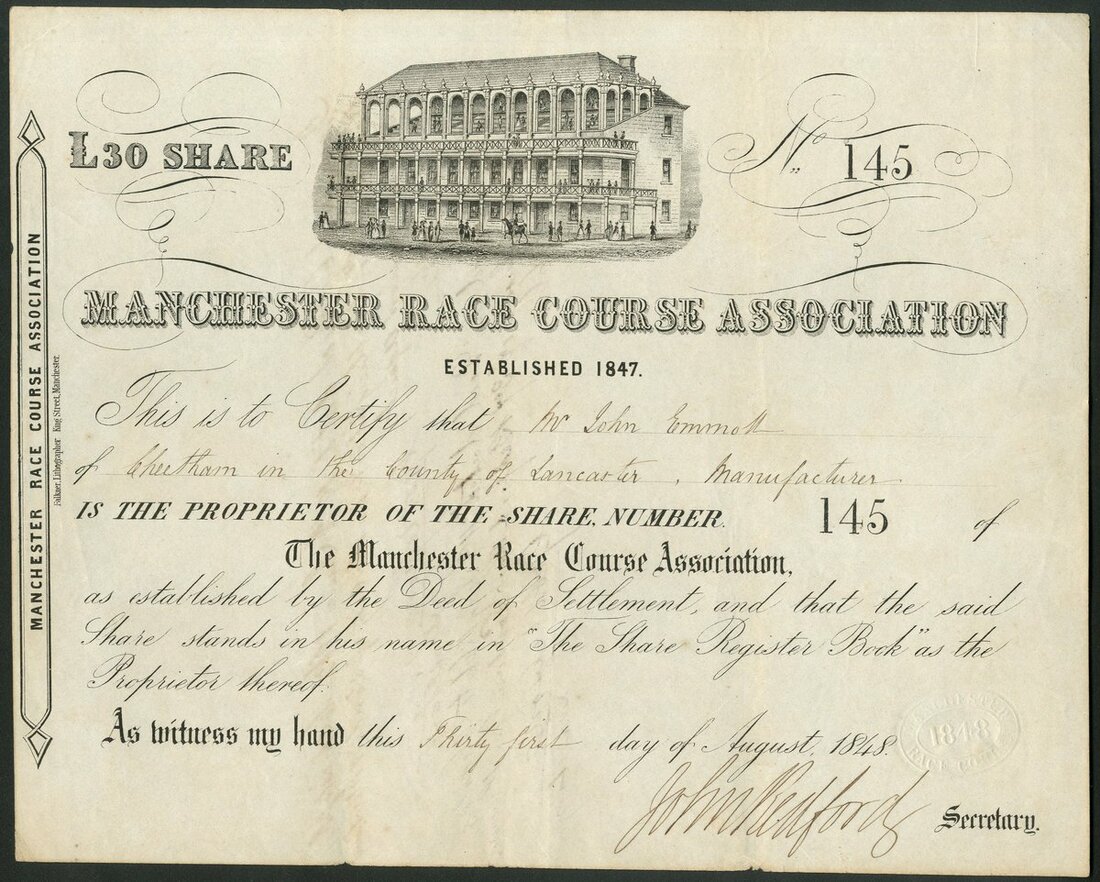 L30 SHARE
No 145
MANCHESTER RACE COURSE ASSOCIATION
ESTABLISHED 1847.
This is to Certify that Mr John Emmott
of Cheetham in the County of Lancaster, Manufacturer
IS THE PROPRIETOR OF THE SHARE, NUMBER 145 of
The Manchester Race Course Association,
as established by the Deed of Settlement, and that the said
Share stands in his name in "The Share Register Book" as the
Proprietor thereof.
As witness my hand this Thirty first day of August, 1848.
John Pedford Secretary.
MANCHESTER RACE COURSE ASSOCIATION
Falkner, Lithographer King Street, Manchester.
MANCHESTER
1848
RACE CO